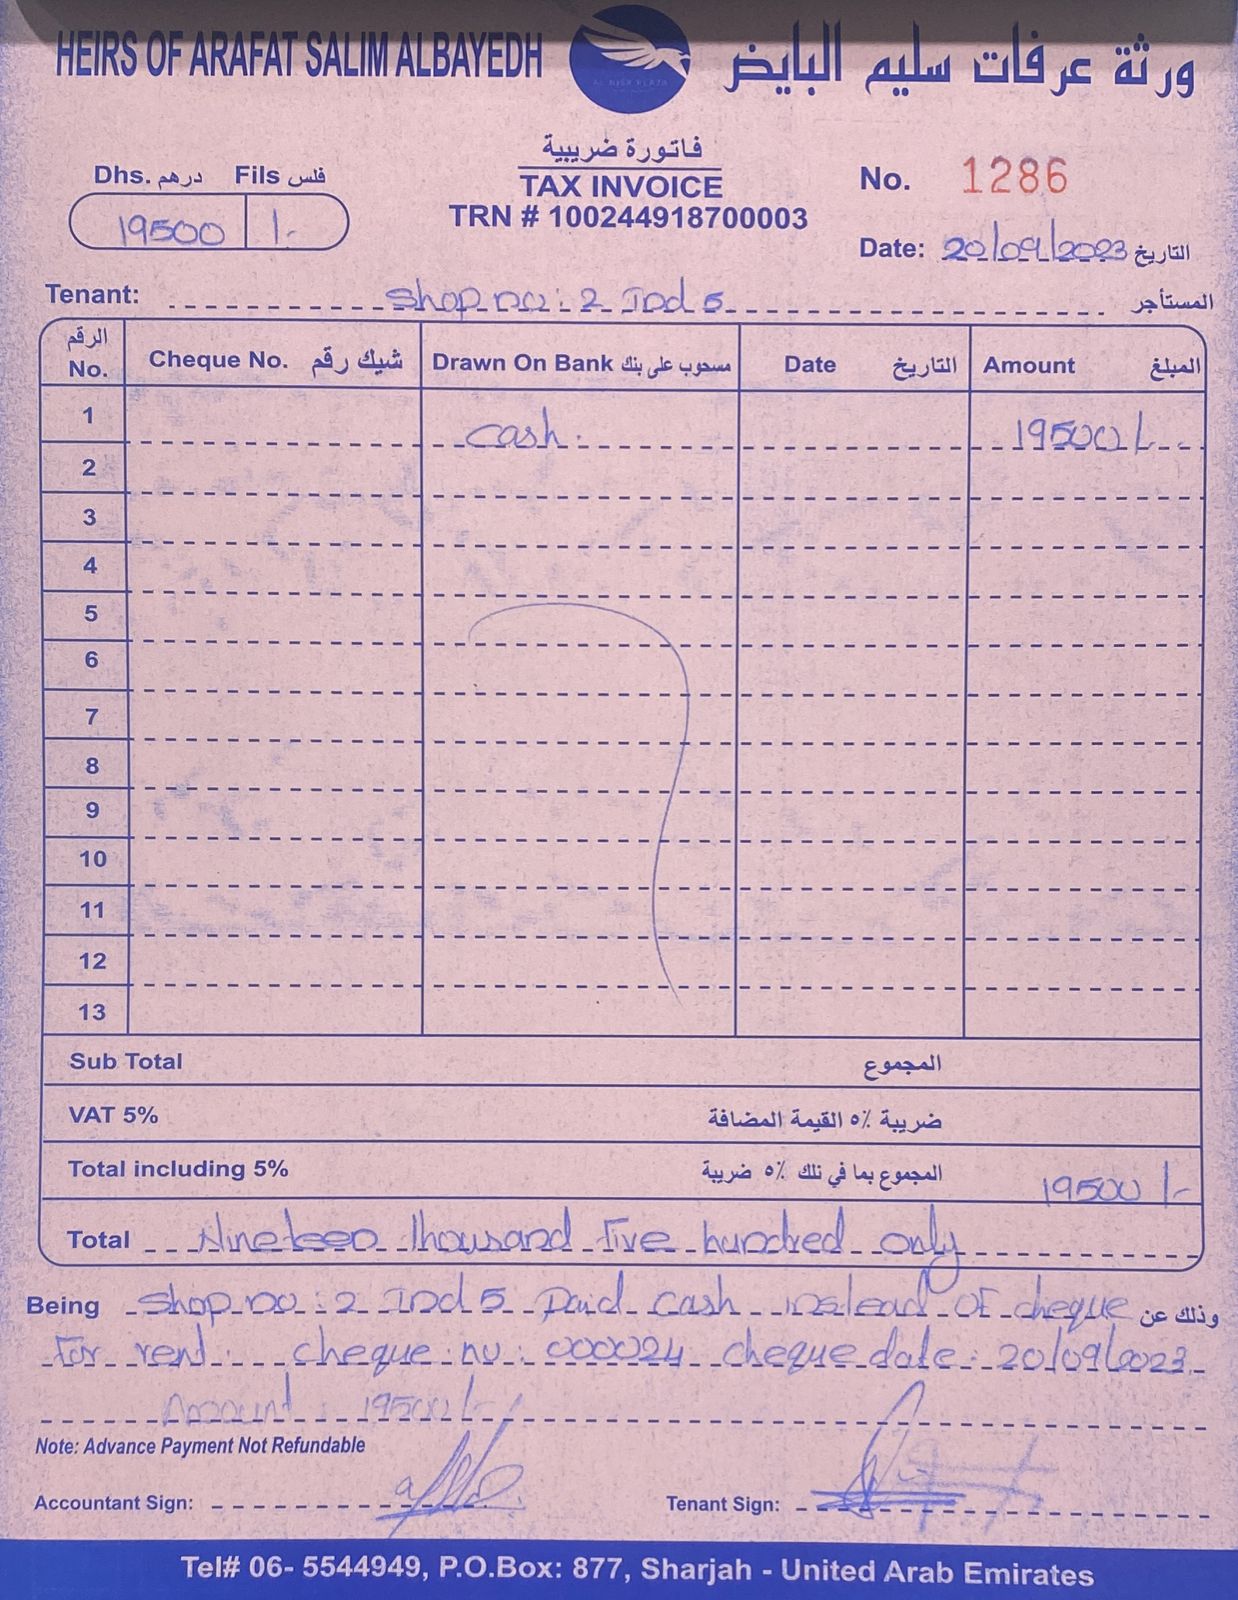 HEIRS OF ARAFAT SALIM ALBAYEDH ورثة عرفات سليم البايض
فاتورة ضريبية
TAX INVOICE
TRN # 100244918700003
Dhs. درهم Fils فلس
19500 /-
No. 1286
Date: 20/09/2023 التاريخ
Tenant: Shop no: 2 Ind 5 المستأجر
الرقم No. Cheque No. شيك رقم Drawn On Bank مسحوب على بنك Date التاريخ Amount المبلغ
1 Cash. 19500/-
2
3
4
5
6
7
8
9
10
11
12
13
Sub Total المجموع
VAT 5% ضريبة ٥٪ القيمة المضافة
Total including 5% المجموع بما في تلك ٥٪ ضريبة 19500/-
Total Nineteen Thousand Five hundred only
Being Shop no: 2 Ind 5 Paid cash instead of cheque وذلك عن
For rent. cheque no: 000024 cheque date: 20/09/2023
Amount: 19500/-
Note: Advance Payment Not Refundable
Accountant Sign: Tenant Sign:
Tel# 06- 5544949, P.O.Box: 877, Sharjah - United Arab Emirates